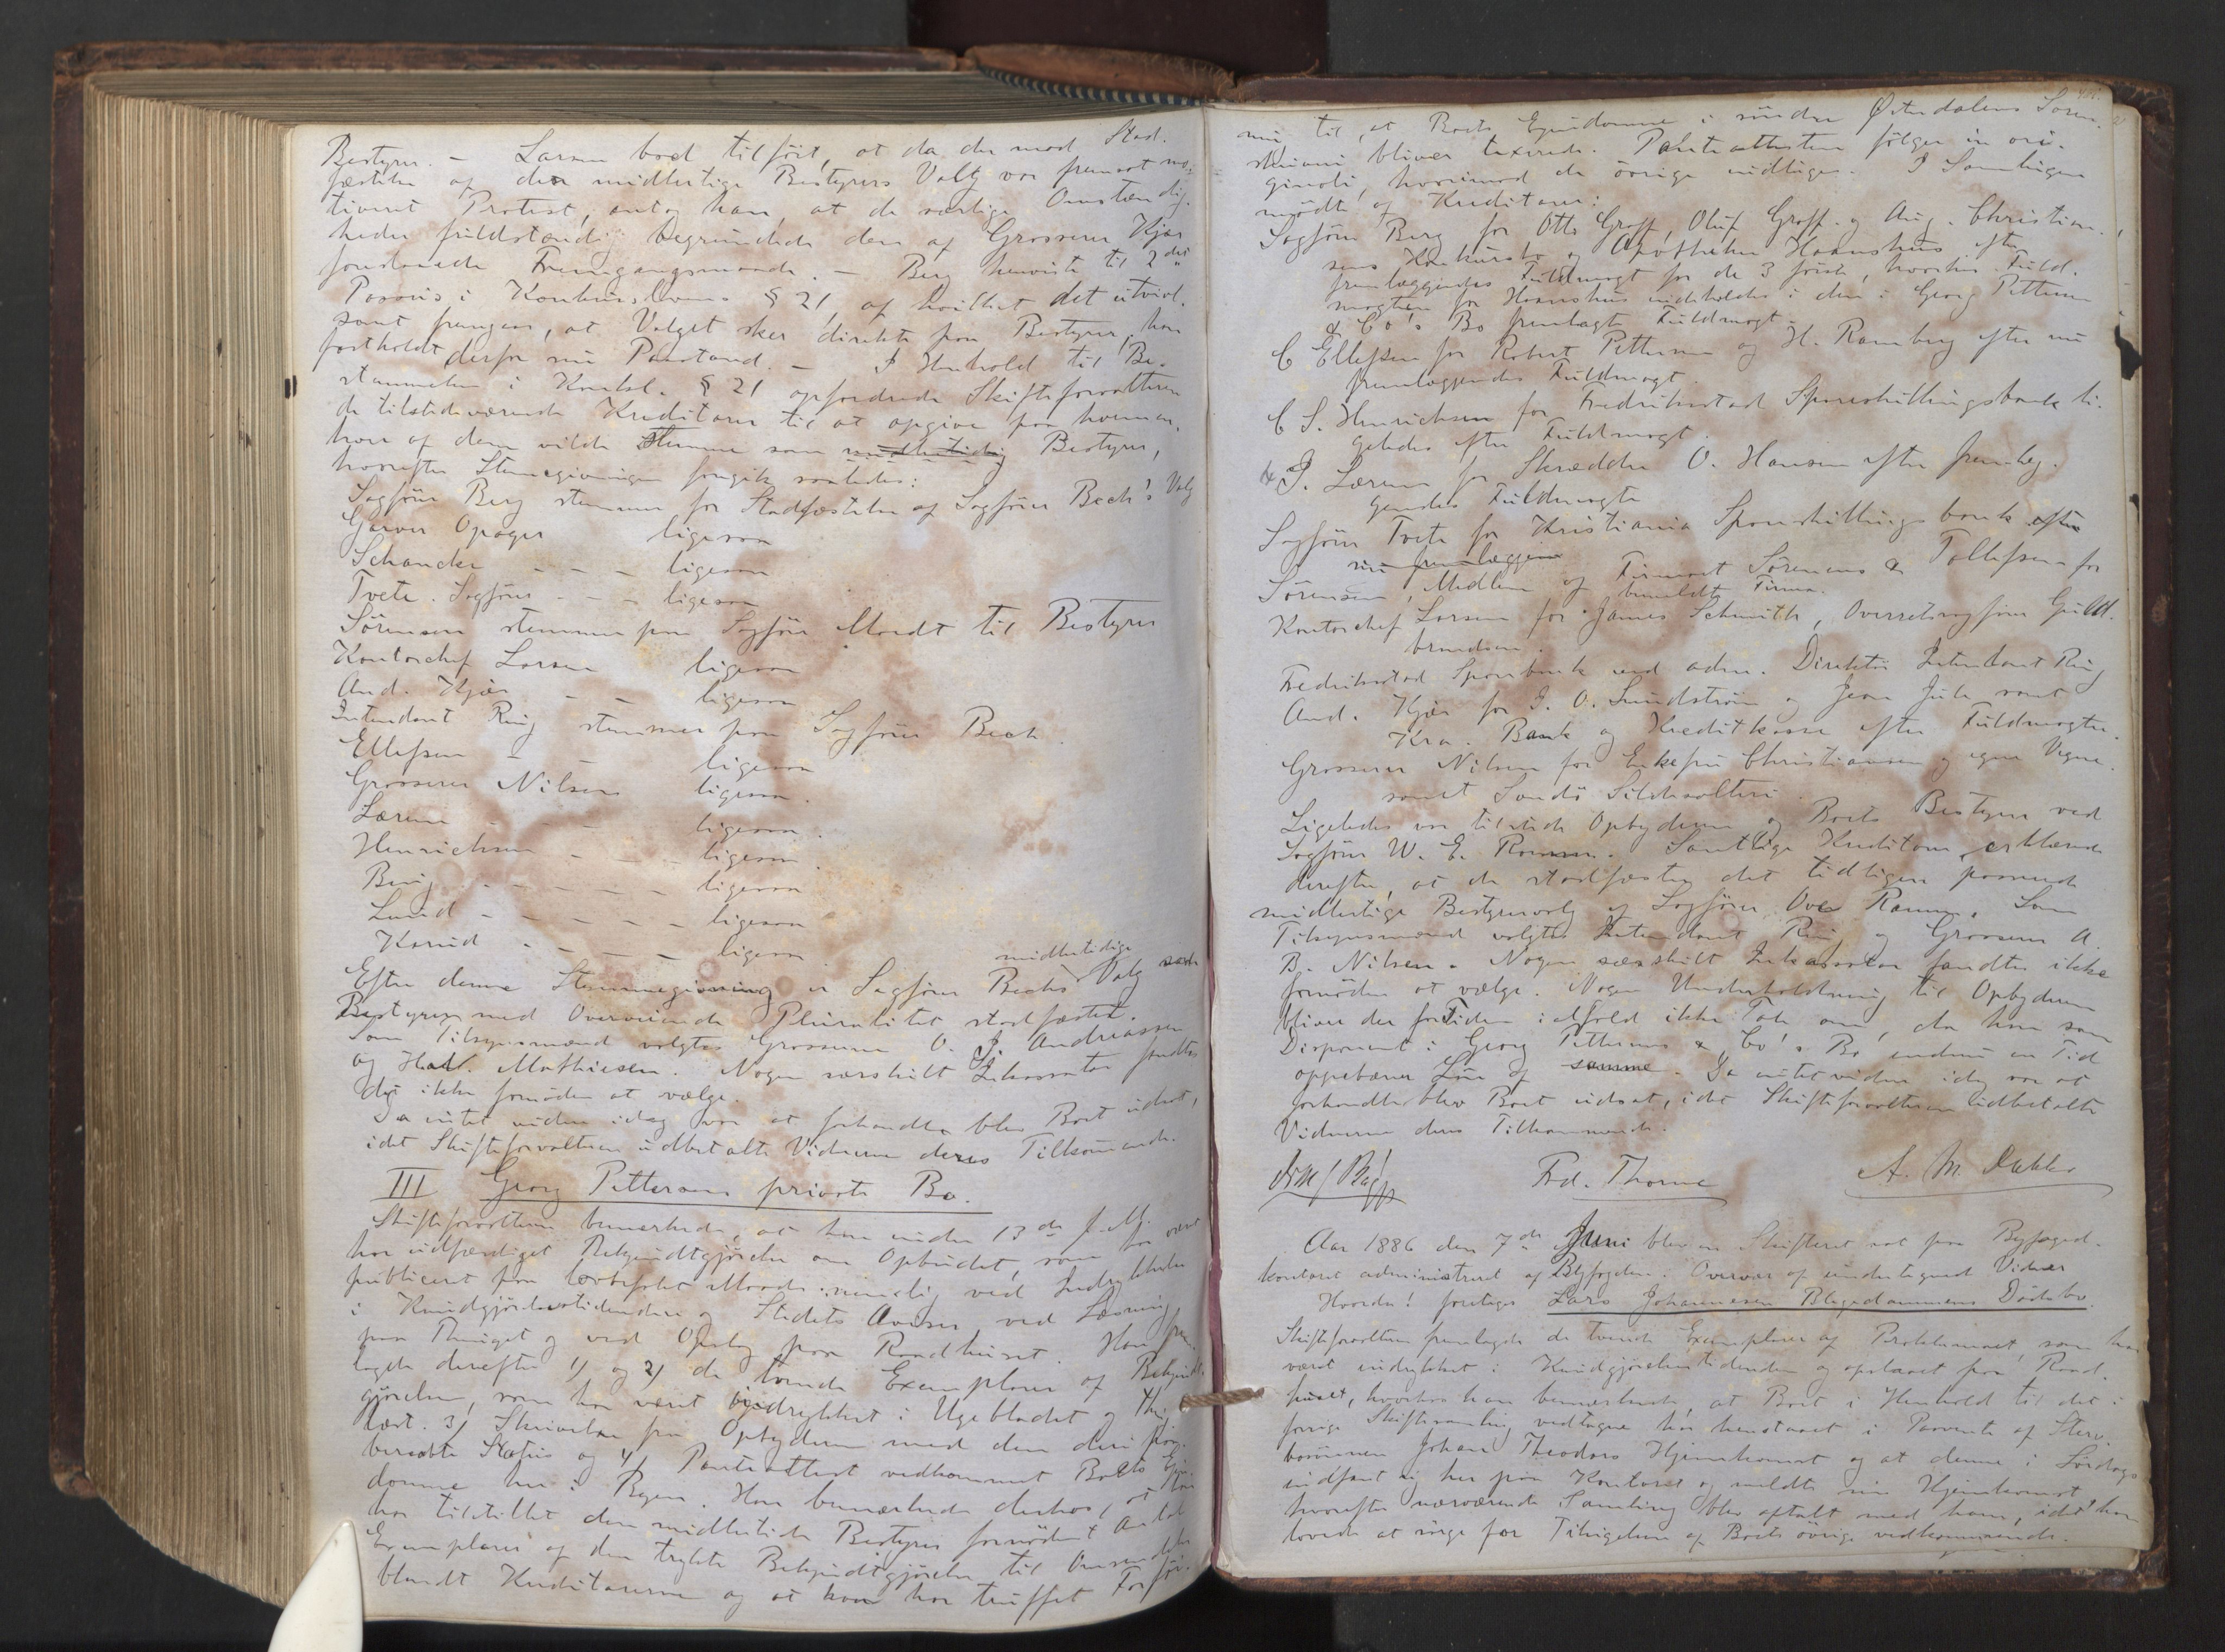 Bestyrer. – Larsen bad tilført, at da der mod Stad-
fæstelse af den midlertidige Bestyrers Valg var fremsat mo-
tiveret Protest, antog han, at de særlige Omstændig-
heder fuldstændig begrundede den af Grosserer Kjær
foreslaaede Fremgangsmaade. – Berg henviste til 2det
Passus i Konkurslovens § 21, af hvilket det utvivl-
somt fremgaar, at Valget sker direkte paa Bestyrer, han
fastholdt derfor sin Paastand. – I Henhold til Be-
stemmelsen i Konksl. § 21 opfordrede Skifteforvalteren
de tilstedeværende Kreditorer til at opgive paa hvem en-
hver af dem vilde stemme som midlertidig Bestyrer,
hvorefter Stemmegivningen foregik saaledes:
Sagfører Berg stemmer for Stadfæstelse af Sagfører Bech's Valg
Garver Opager ligesaa
Schancke – – – ligesaa
Tvete. Sagfører – – – ligesaa
Sørensen stemmer paa Sagfører Mordt til Bestyrer
Kontorchef Larsen ligesaa
And. Kjær – – ligesaa
Intendant Ring stemmer paa Sagfører Bech
Ellefsen – – ligesaa
Grosserer Nilsen ligesaa.
Lærum – – – ligesaa.
Henrichsen – – – ligesaa.
Berg – – – – – ligesaa
Lund – – – – – ligesaa
Korud – – – – ligesaa.
Efter denne Stemmegivning er Sagfører Bechs midlertidige Valg som
Bestyrer med Overveiende Pluralitet stadfæstet.
Som Tilsynsmænd valgtes Grosserer O. J. Andreassen
og Hall. Mathiesen. Nogen særskilt Inkassator fandtes
det ikke fornøden at vælge.
Da intet videre idag var at forhandle blev Boet udsat,
idet Skifteforvalteren udbetalte Vidnerne deres Tilkommende.
III Georg Pettersens private Bo.
Skifteforvalteren bemærkede, at han under 13de f. M.
har udfærdiget Bekjendtgjørelse om Opbudet, som har været
publiceret paa lovbefalet Maade nemlig ved Indrykkelse
i Kundgjørelsestidenden og Stedets Aviser ved Læsning
paa Thinget og ved Opslag paa Raadhuset. Han frem-
lagde derefter 1) og 2) de tvende Exemplarer af Bekjendt-
gjørelsen, som har været indrykket i Ugebladet og Th.
læst. 3) Skrivelse fra Opbyderen med den deri paa-
beraabte Status og 4) Panteattest vedkommende Boets Eien-
domme her i Byen. Han bemærkede derhos, at han
har tilstillet den midlertidige Bestyrer fornødent Antal
Exemplarer af den trykte Bekjendtgjørelse til Omsendelse
blandt Kreditorerne og at han har truffet Forføi-
ning til, at Boets Eiendomme i søndre Østerdalens Soren-
skriveri bliver taxerede. Panteattesten følger in ori-
ginali, hvorimod de øvrige indtages. I Samlingen
mødte af Kreditorer:
Sagfører Berg for Otto Graff, Oluf Graff og Aug. Christian-
sens Konkursbo og Apotheker Haanshus efter
fremlæggendes Fuldmagt for de 3 første, hvorhos Fuld-
magten for Haanshus indeholdes i den i Georg Pettersen
& Co's Bo fremlagte Fuldmagt.
C Ellefsen for Robert Pettersen og H. Ramberg efter nu
fremlæggendes Fuldmagt.
C S. Henrichsen for Fredrikstad Spareskillingsbank li-
geledes efter Fuldmagt.
J. Lærum for Skrædder O. Hansen efter fremlæg-
gendes Fuldmagt
Sagfører Tvete for Kristiania Spareskillingsbank efter
nu fremlæggen
Sørensen, Medlem af Firmaet Sørensens & Tollefsen for
bemeldte Firma.
Kontorchef Larsen for James Schmith, Overretssagfører Guld-
brandsen.
Fredrikstad Sparebank ved adm. Direktør Intendant Ring
And. Kjær for J. O. Sundstrøm og Jean Jule samt
Kra. Bank og Kreditkasse efter Fuldmagter.
Grosserer Nilsen for Enkefru Christiansen og egne Vegne.
samt Sandø Sildesalteri.
Ligeledes var tilstede Opbyderen og Boets Bestyrer ved
Sagfører W. E. Ramm. Samtlige Kreditorer erklærede
derefter, at de stadfæster det tidligere passerede
midlertidige Bestyrervalg af Sagfører Ove Ramm. Som
Tilsynsmænd valgtes Intendant Ring og Grosserer A.
B. Nilsen. Nogen særskilt Inkassator fandtes ikke
fornøden at vælge. Nogen Underholdning til Opbyderen
bliver der for Tiden ialfald ikke Tale om, da han som
Disponent i Georg Pettersens & Co's Bo endnu en Tid
oppebærer Løn af samme. Da intet videre idag var at
forhandle blev Boet udsat, idet Skifteforvalteren udbetalte
Vidnerne deres Tilkommende.
Frd. Thorne A. M. Dahler
Aar 1886 den 7de Juni blev en Skifteret sat paa Byfoged-
kontoret administreret af Byfogden. Overvær af undertegnede Vidner
Hvorda! foretoges Lars Johannesen Blegedammens Dødsbo.
Skifteforvalteren fremlagde de tvende Exemplarer af Proklamaet, som har
været indrykket i Kundgjørelsestidenden og opslaaet paa Raad-
huset, hvorhos han bemærkede, at Boet i Henhold til det i
forrige Skiftesamling vedtagne har henstaaet i Paavente af Sterv-
bosønnen Johan Theodors Hjemkomst og at denne i Lørdags
indfant sig her paa Kontoret og meldte sin Hjemkomst
hvorefter nærværende Samling blev aftalt med ham, idet han
lovede at sørge for Tilsigelsen af Boets øvrige vedkommende.